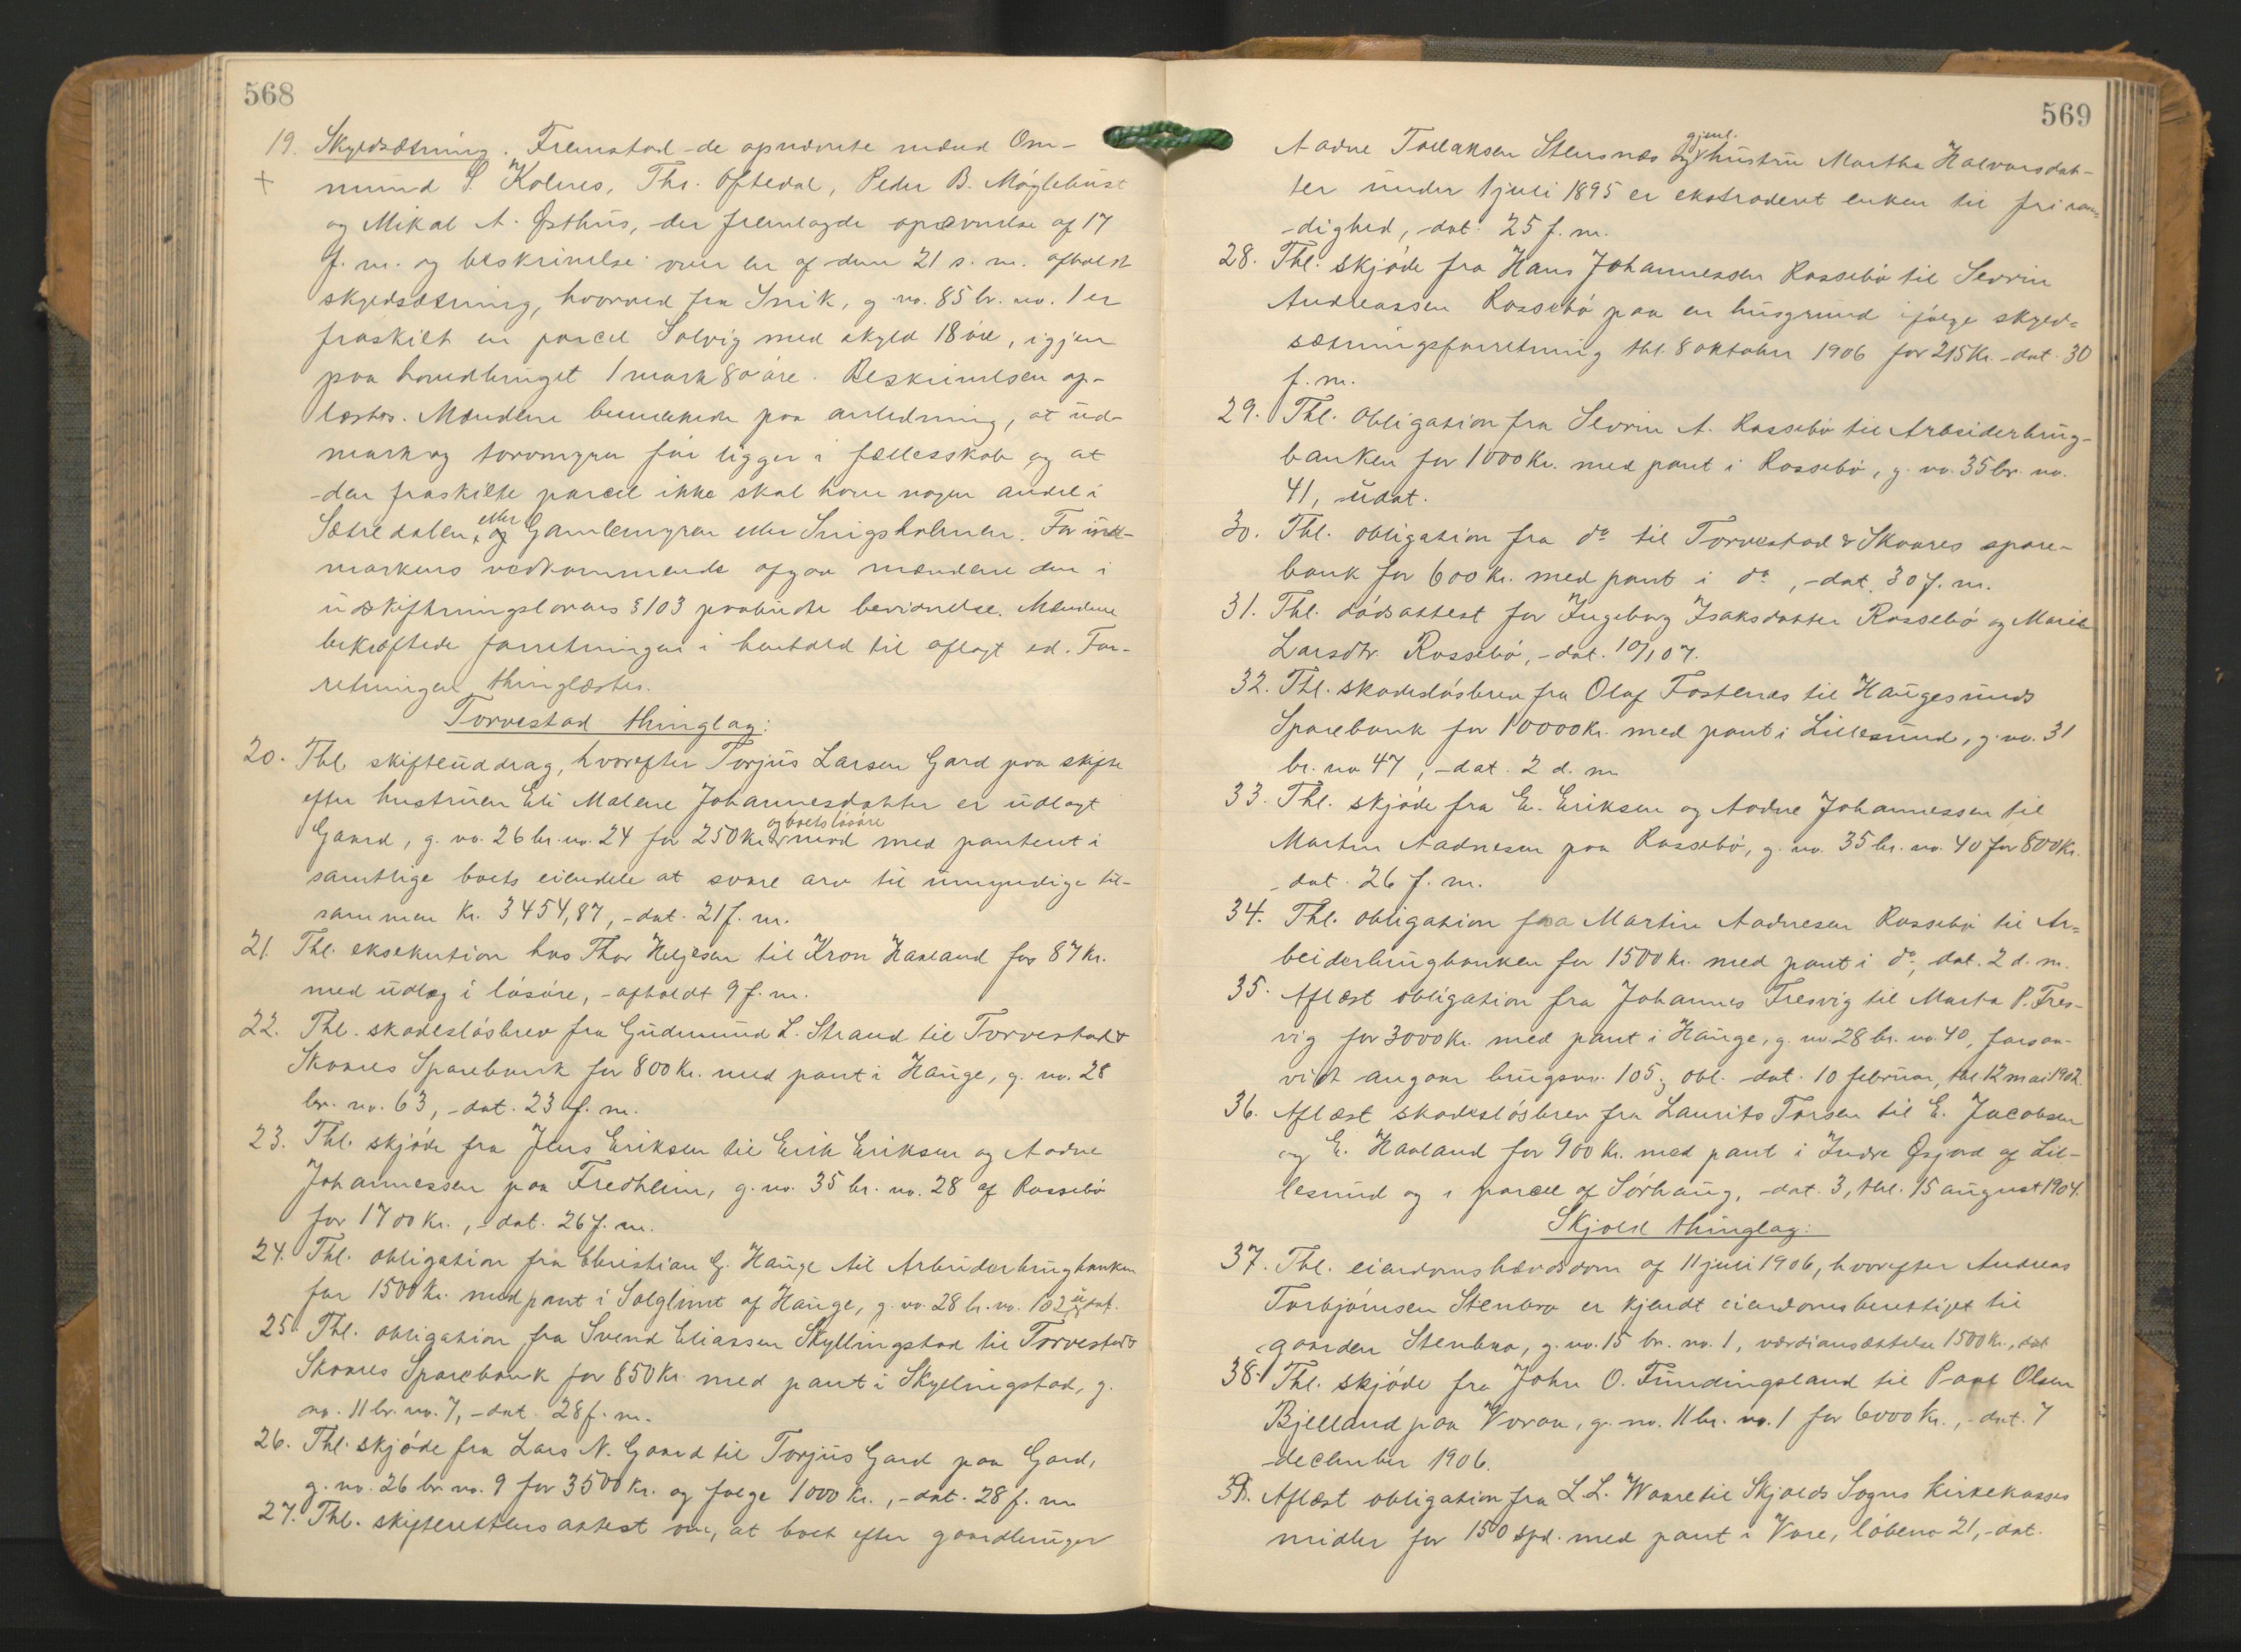 568
19. Skyldsætning. Fremstod de opnævnte mænd Om-
+ mund S. Kolnes, Ths. Oftedal, Peder B. Møglehust
og Mikal A. Østhus, der fremlagde opnævnelse af 17
f. m. og beskrivelse over en af dem 21 s. m. afholdt
skyldsætning, hvorved fra Snik, g. no. 85 br. no. 1 er
fraskilt en parcel Solvig med skyld 18 øre, igjen
paa hovedbruget 1 mark 80 øre. Beskrivelsen op-
læstes. Mændene bemærkede paa anledning, at ud-
mark og torvmyrer før ligger i fællesskab og at
den fraskilte parcel ikke skal have nogen andel i
Sætredalen, eller Gamlemyren eller Snigsholmen. For ind-
markens vedkommende afgav mændene den i
udskiftningslovens § 103 paabudte bevidnelse. Mændene
bekræftede forretningen i henhold til aflagt ed. For-
retningen thinglæstes.
Torvestad thinglag:
20. Thl. skifteuddrag, hvorefter Torjus Larsen Gard paa skifte
efter hustruen Eli Malene Johannesdatter er udlagt
Gaard, g. no. 26 br. no. 24 for 250 kr. og boets løsøre mod med panteret i
samtlige boets eiendele at svare arv til umyndige til-
sammen kr. 3454,87, dat. 21 f. m.
21. Thl. eksekution hos Thor Heljesen til Kron Haaland for 87 kr.
med udlæg i løsøre, afholdt 9 f. m.
22. Thl. skadesløsbrev fra Gudmund L. Strand til Torvestad &
Skaares Sparebank for 800 kr. med pant i Hauge, g. no. 28
br. no. 63, dat. 23 f. m.
23. Thl. skjøde fra Jens Eriksen til Erik Eriksen og Aadne
Johannessen paa Fredheim, g. no. 35 br. no. 28 af Rossebø
for 1700 kr., dat. 26 f. m.
24. Thl. obligation fra Christian G. Hauge til Arbeiderbrugbanken
for 1500 kr. med pant i Solglimt af Hauge, g. no. 28 br. no. 102, udat.
25. Thl. obligation fra Svend Eliassen Skyllingstad til Torvestad &
Skaares Sparebank for 850 kr. med pant i Skyllingstad, g.
no. 11 br. no. 7, dat. 28 f. m.
26. Thl. skjøde fra Lars N. Gaard til Torjus Gard paa Gard,
g. no. 26 br. no. 9 for 3500 kr. og følge 1000 kr., dat. 28 f. m.
27. Thl. skifterettens attest om, at boet efter gaardbruger
569
Aadne Tollaksen Stensnæs og gjenl. hustru Martha Halvorsdat-
ter under 1 juli 1895 er ekstraderet enken til fri raa-
dighed, dat. 25 f. m.
28. Thl. skjøde fra Hans Johannessen Rossebø til Sevrin
Andreassen Rossebø paa en husgrund ifølge skyld-
sætningsforretning thl. 8 oktober 1906 for 215 kr. dat. 30
f. m.
29. Thl. obligation fra Sevrin A. Rossebø til Arbeiderbrug-
banken for 1000 kr. med pant i Rossebø, g. no. 35 br. no.
41, udat.
30. Thl. obligation fra do til Torvestad & Skaares spare-
bank for 600 kr. med pant i do, dat. 30 f. m.
31. Thl. dødsattest for Ingeborg Isaksdatter Rossebø og Marie
Larsdtr. Rossebø, dat. 10/1 07.
32. Thl. skadesløsbrev fra Olaf Fostenæs til Haugesunds
Sparebank for 10000 kr. med pant i Lillesund, g. no. 31
br. no 47, dat. 2 d. m.
33. Thl. skjøde fra E. Eriksen og Aadne Johannessen til
Martin Aadnesen paa Rossebø, g. no. 35 br. no. 40 for 800 kr.
dat. 26 f. m.
34. Thl. obligation fra Martin Aadnesen Rossebø til Ar-
beiderbrugbanken for 1500 kr. med pant i do, dat. 2 d. m.
35. Aflæst obligation fra Johannes Fresvig til Marta P. Fres-
vig for 3000 kr. med pant i Hauge, g. no. 28 br. no. 40, forsaa-
vidt angaar brugsno. 105; obl. dat. 10 februar, thl. 12 mai 1902.
36. Aflæst skadesløsbrev fra Laurits Torsen til E. Jacobsen
og E. Haaland for 900 kr. med pant i Indre Øsjord af Lil-
lesund og i parcel af Sørhaug, dat. 3, thl. 15 august 1904.
Skjold thinglag:
37. Thl. eiendomshævdsdom af 11 juli 1906, hvorefter Andreas
Torbjørnsen Stenbro er kjendt eiendomsberettiget til
gaarden Stenbro, g. no. 15 br. no. 1, værdiansættelse 1500 kr., dat
38. Thl. skjøde fra John O. Fundingsland til Paul Olsen
Bjelland paa Voraa, g. no. 11 br. no. 1 for 6000 kr., dat. 7
december 1906.
39. Aflæst obligation fra L. L. Waare til Skjolds Sogns Kirkekasses
midler for 150 spd. med pant i Vare, løbeno 21, dat.